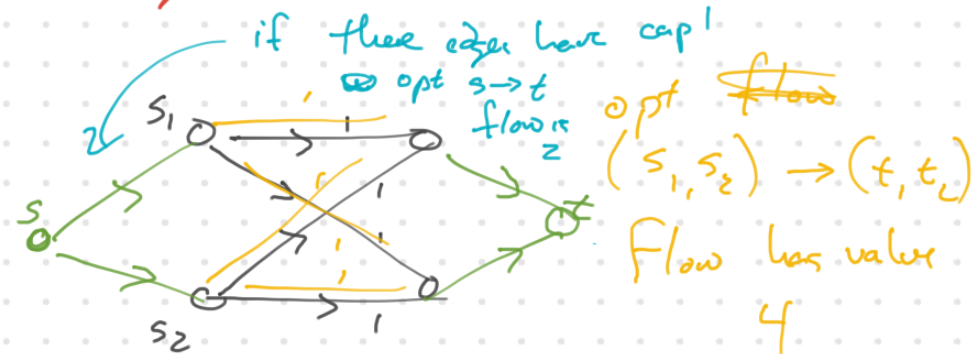 if these edges have cap 1
opt s→t
flow is
2
opt flow
(s₁, s₂) → (t, t₂)
Flow has value
4
s₁
1
1
s
1
1
1
1
1
t
s₂
1